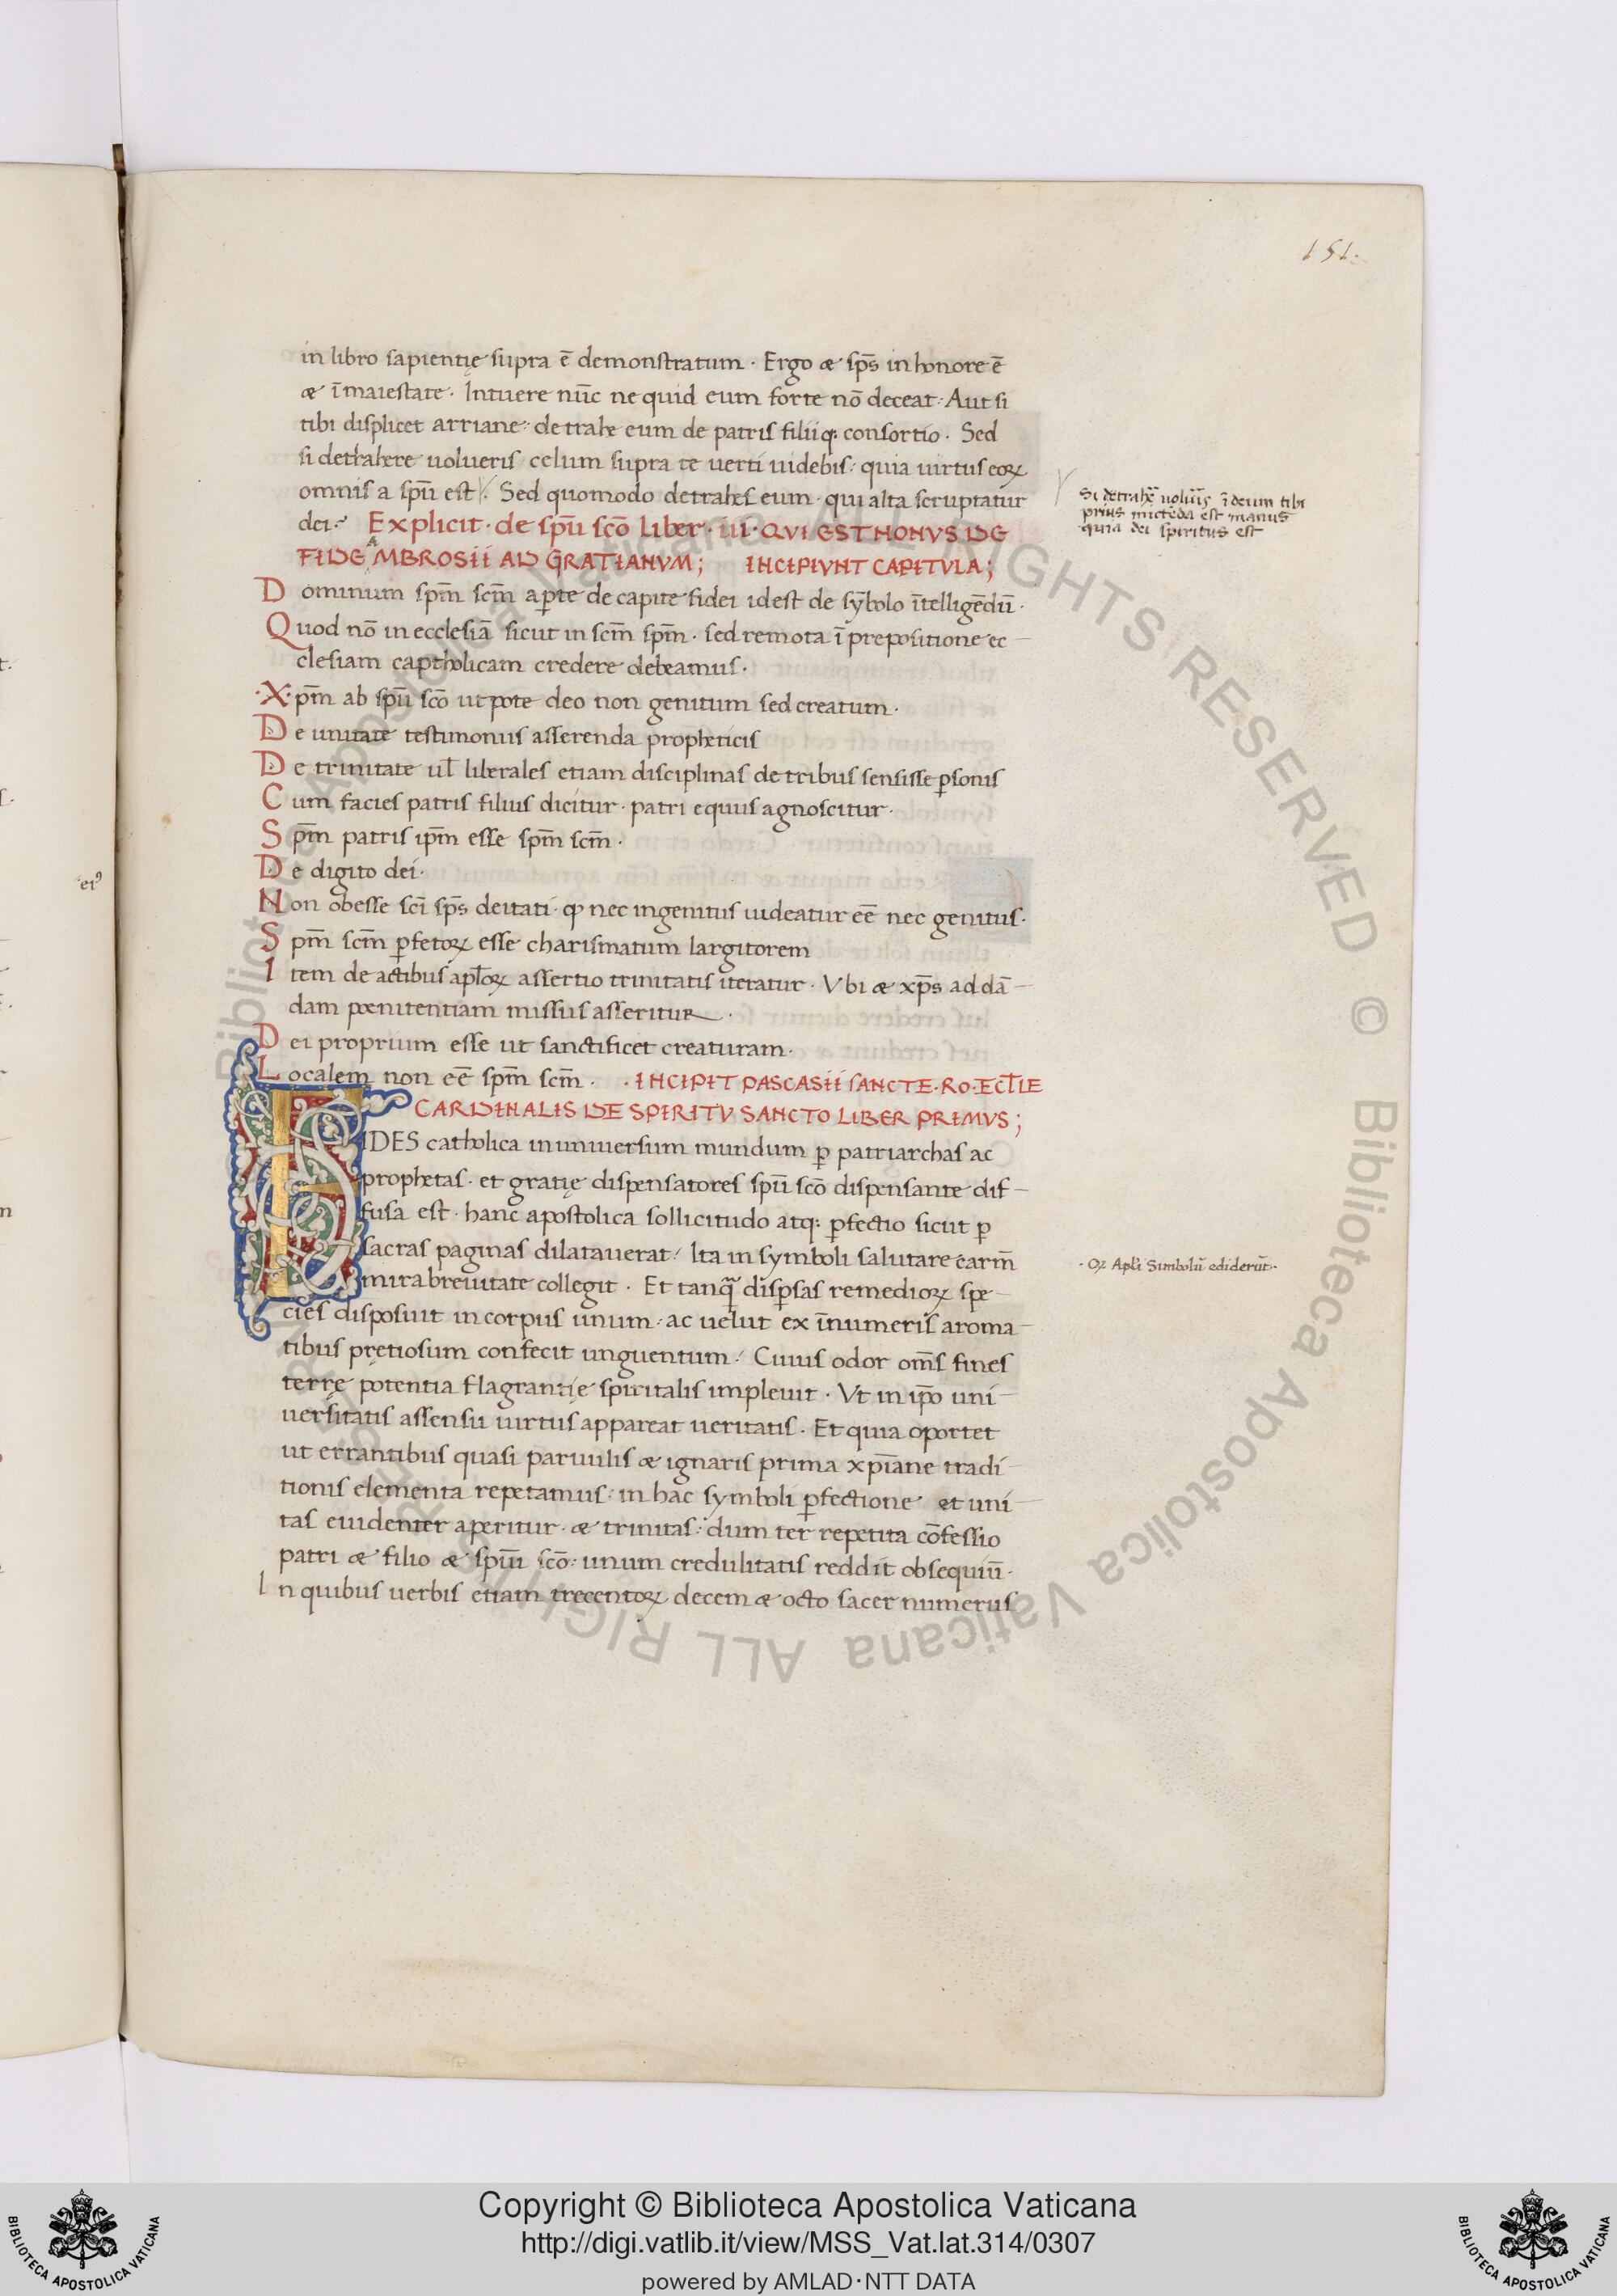 151.
in libro sapientię supra ē demonstratum · Ergo æ sp̄s in honore ē
æ ī maiestate · Intuere nūc ne quid eum forte nō deceat : Aut si
tibi displicet arriane : detrahe eum de patris filiiq; consortio · Sed
si detrahere uolueris celum supra te uerti uidebis : quia uirtus eoꝝ
omnis a spū est · Sed quomodo detrahes eum · qui alta scruptatur
dei · Explicit · de spū scō liber · iii · QVI EST NONVS DE
FIDE AMBROSII AD GRATIANVM ; INCIPIVNT CAPITVLA ;
Si detrahē uoluīs ī deum tibi
prius mictēda est manus
quia dei spiritus est
Dominum spm̄ scm̄ aꝑte de capite fidei idest de sȳbolo ītelligēdū ·
Quod nō in ecclesiā sicut in scm̄ spm̄ · sed remota ī prepositione ec
clesiam captholicam credere debeamus ·
· X · pm̄ ab spū scō utpote deo non genitum sed creatum ·
De unitate testimonus asserenda propheticis
De trinitate ul̄ liberales etiam disciplinas de tribus sensisse ꝑsonis
Cum facies patris filius dicitur · patri equus agnoscitur ·
Spm̄ patris ipm̄ esse spm̄ scm̄ ·
De digito dei ·
Non obesse scī sp̄s deitati · ꝙ nec ingenitus uideatur eē nec genitus ·
Spm̄ scm̄ ꝑfetoꝝ esse charismatum largitorem
Item de actibus apl̄oꝝ assertio trinitatis iteratur · Vbi æ xp̄s ad dā
dam pœnitentiam missus asseritur ·
Dei proprium esse ut sanctificet creaturam ·
Localem non eē spm̄ scm̄ · · INCIPIT PASCASII SANCTE · RO · ECL̄IE
CARDINALIS DE SPIRITV SANCTO LIBER PRIMVS ;
FIDES catholica in uniuersum mundum ꝑ patriarchas ac
prophetas · et gratię dispensatores spū scō dispensante dif
fusa est · hanc apostolica sollicitudo atq; ꝑfectio sicut ꝑ
sacras paginas dilatauerat / Ita in symboli salutare carm̄
mira breuitate collegit · Et tanq̄ disꝑsas remedioꝝ spe
cies disposuit in corpus unum · ac uelut ex īnumeris aroma
tibus pretiosum confecit unguentum / Cuius odor om̄s fines
terrę potentia flagrantię spiritalis impleuit · Vt in ip̄o uni
uersitatis assensu uirtus appareat ueritatis · Et quia oportet
ut errantibus quasi paruulis æ ignaris prima xpīane tradi
tionis elementa repetamus : in hac symboli ꝑfectione et uni
tas euidenter aperitur · æ trinitas : dum ter repetita cōfessio
patri æ filio æ spūi scō : unum credulitatis reddit obsequiū ·
In quibus uerbis etiam trecentoꝝ decem æ octo sacer numerus
· Oꝝ Apl̄i Simbolū ediderūt ·
ei⁹
Biblioteca Apostolica Vaticana ALL RIGHTS RESERVED © Biblioteca Apostolica Vaticana ALL RIGHTS RESERVED
Copyright © Biblioteca Apostolica Vaticana
http://digi.vatlib.it/view/MSS_Vat.lat.314/0307
powered by AMLAD·NTT DATA
BIBLIOTECA APOSTOLICA VATICANA
BIBLIOTECA APOSTOLICA VATICANA